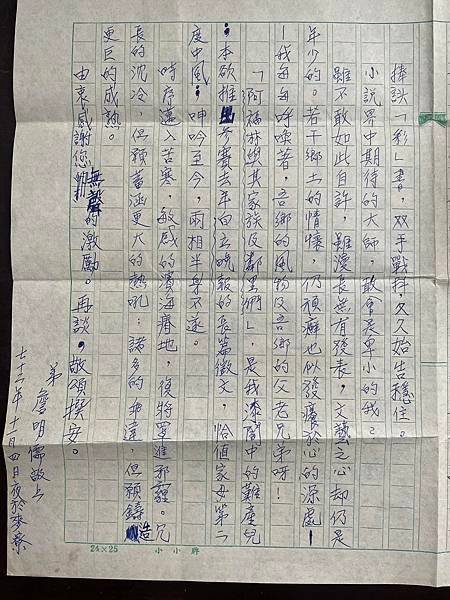 捧讀「彩」書，双手戰抖，久久始告穩住。
小說界中期待的大師，敢會是卑小的我？
雖不敢如此自許，雖漫長無有發表，文藝之心却仍是
年少的。若干鄉土的情懷，仍頑癬也似發癢於心的深處—
—我每每呼喚著，吾鄉的風物及吾鄉的父老兄弟呀！
「阿福林與其家族及鄰里們」，是我漆闇中的難產兒
；本欲推出參賽去年自立晚報的長篇徵文，恰值家母第二
度中風；呻吟至今，兩相半身不遂。
時序邁入苦寒，敏感的濱海脊地，復將罩進邪霾。冗
長的沈冷，但預蓄涵更大的熱吼；諸多的乖違，但預鑄造
更巨的成熟。
由衷感謝您們無聲的激勵。再談，敬頌撰安。
弟 詹明儒敬上
七十二年十二月四日夜於麥寮
24×25 小小牌